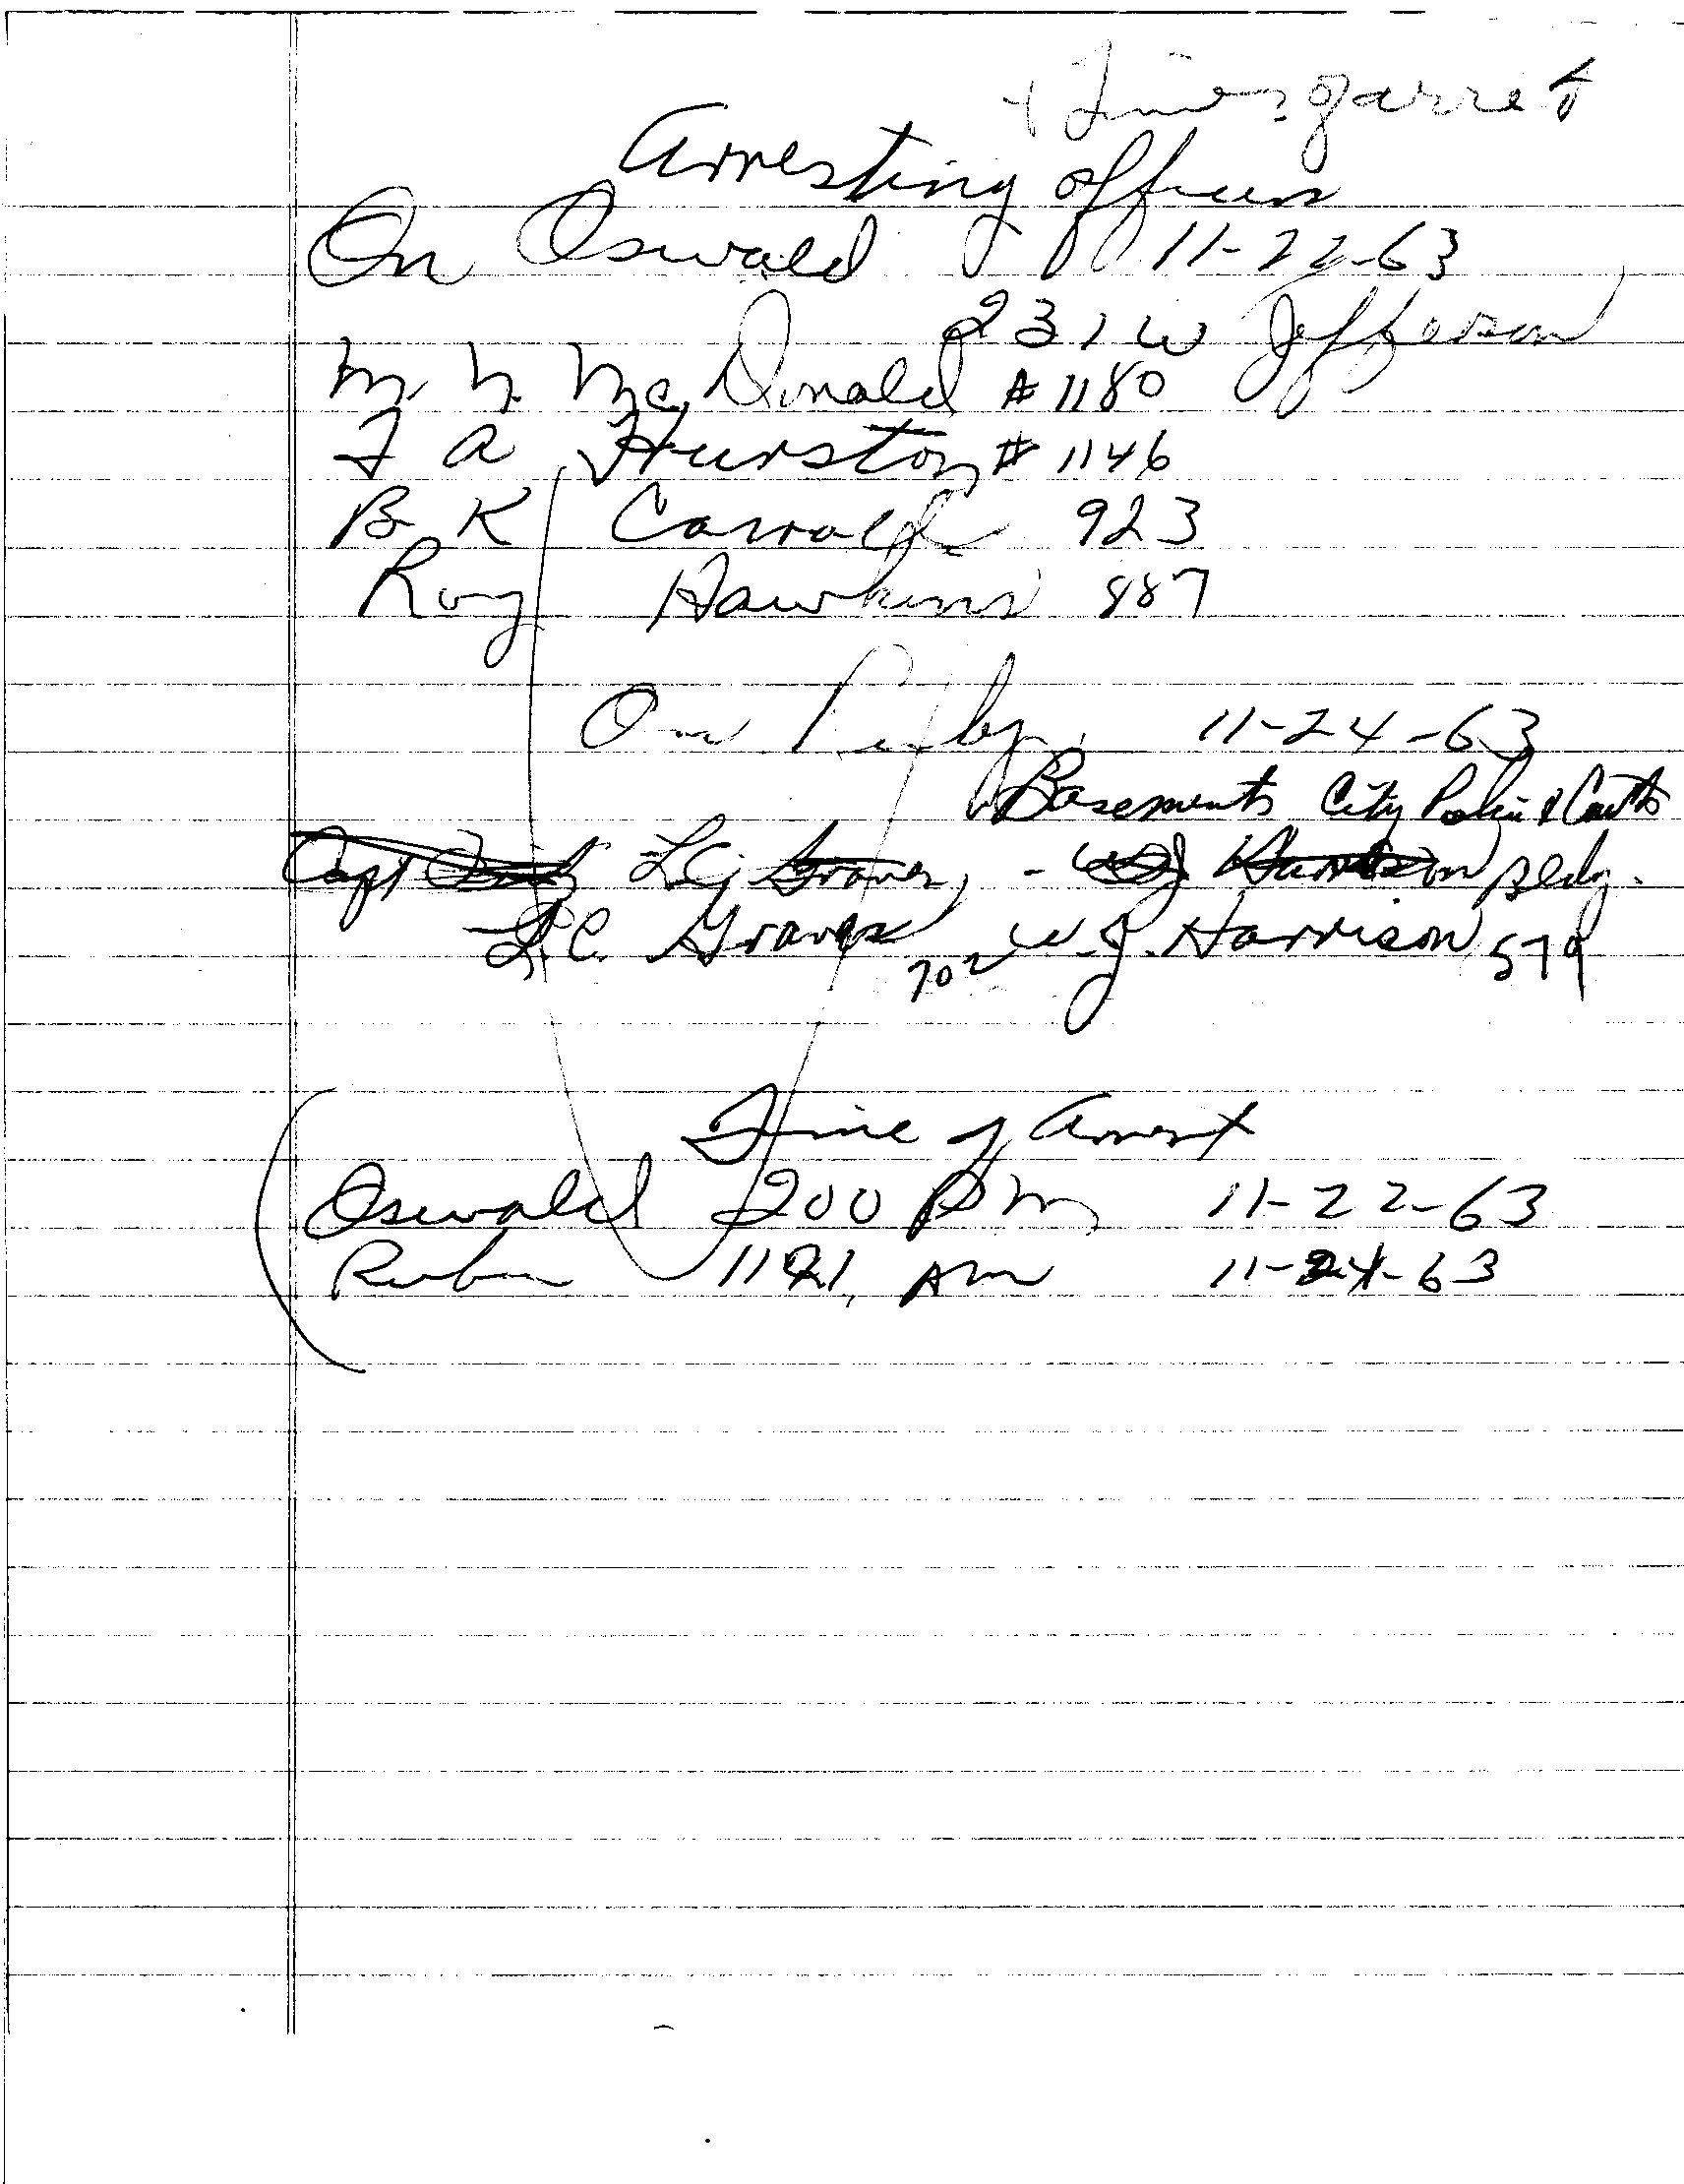 Arresting officers
On Oswald 11-22-63
231 W Jefferson
M. N. McDonald #1180
T A Hurston # 1146
B K Carroll 923
Roy Hawkins 887
On Ruby 11-24-63
Basement City Police & Courts
Capt L.C. Graves, - W J Harrison Bldg.
L.C. Graves 702 W.J. Harrison 579
Time of Arrest
Oswald 200 PM 11-22-63
1121, AM 11-24-63